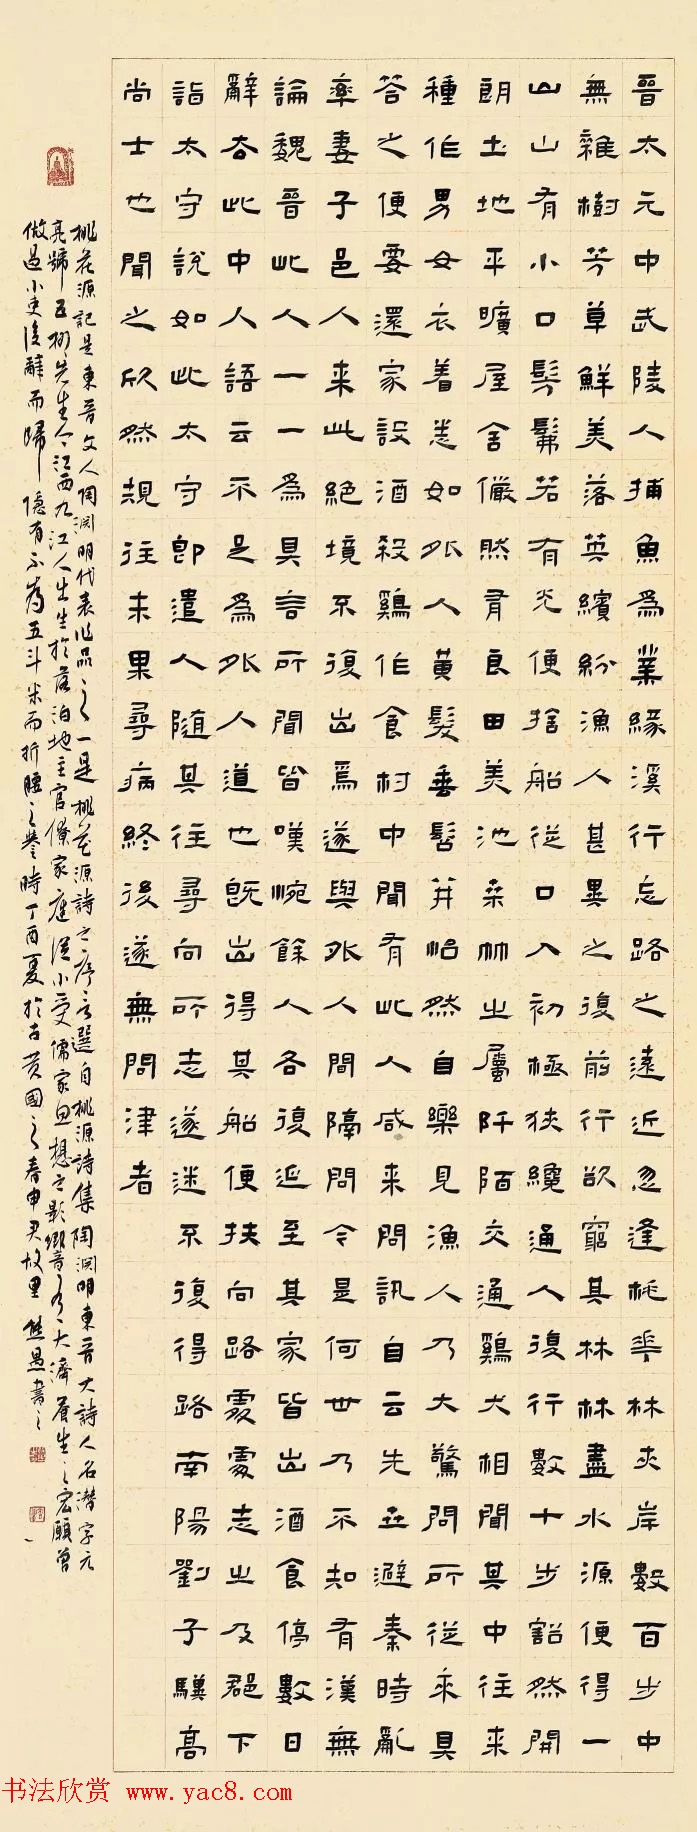 晉太元中武陵人捕魚為業緣溪行忘路之遠近忽逢桃華林夾岸數百步中
無雜樹芳草鮮美落英繽紛漁人甚異之復前行欲窮其林林盡水源便得一
山山有小口髣髴若有光便捨船從口入初極狹纔通人復行數十步豁然開
朗土地平曠屋舍儼然有良田美池桑竹之屬阡陌交通鷄犬相聞其中往來
種作男女衣着悉如外人黃髮垂髫并怡然自樂見漁人乃大驚問所從來具
答之便要還家設酒殺鷄作食村中聞有此人咸來問訊自云先世避秦時亂
率妻子邑人來此絕境不復出焉遂與外人間隔問今是何世乃不知有漢無
論魏晉此人一一為具言所聞皆嘆惋餘人各復延至其家皆出酒食停數日
辭去此中人語云不足為外人道也既出得其船便扶向路處處志之及郡下
詣太守說如此太守即遣人隨其往尋向所志遂迷不復得路南陽劉子驥高
尚士也聞之欣然規往未果尋病終後遂無問津者
桃花源記是東晉文人陶淵明代表作品之一是桃花源詩之序言選自桃源詩集陶淵明東晉大詩人名潛字元
亮號五柳先生今江西九江人出生於落泊地主官僚家庭從小受儒家思想之影響大濟蒼生之宏願曾
做過小吏後辭而歸隱有不為五斗米而折腰之譽時丁酉夏於古黃國之春申君故里熊愚書之
书法欣赏 www.yac8.com